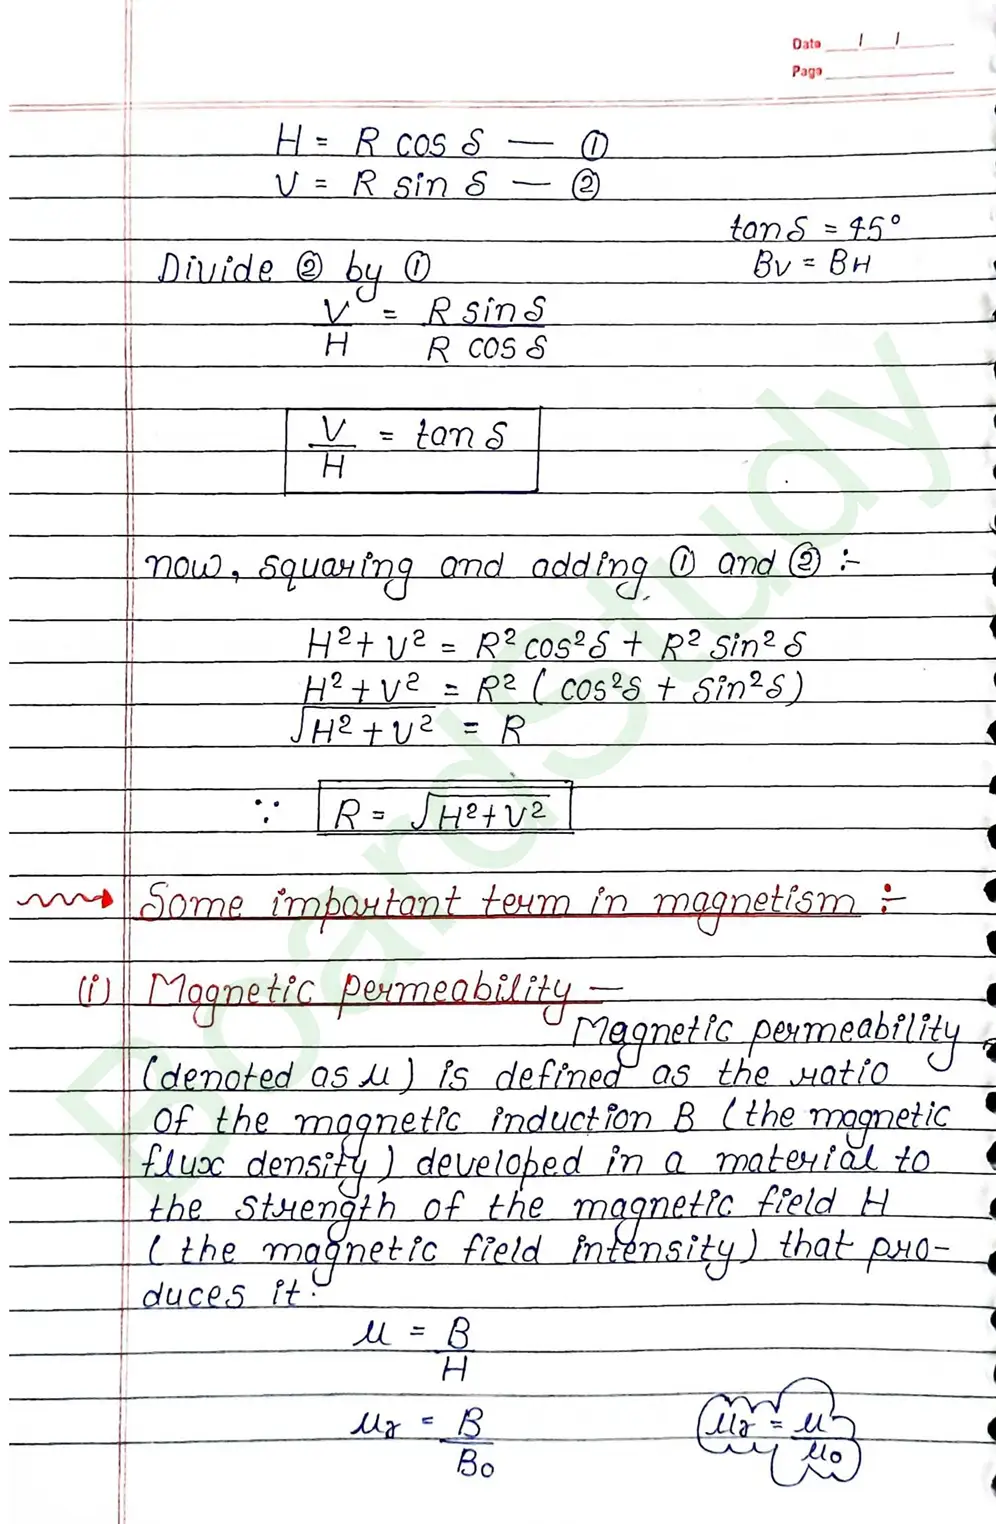 Date / /
Page
H = R cos δ — ①
V = R sin δ — ②
tan δ = 45°
Bv = BH
Divide ② by ①
V/H = R sin δ / R cos δ
V/H = tan δ
now, squaring and adding ① and ② :-
H² + V² = R² cos²δ + R² sin²δ
H² + V² = R² ( cos²δ + sin²δ )
√H² + V² = R
∵ R = √H² + V²
Some important term in magnetism :-
(i) Magnetic permeability —
Magnetic permeability
(denoted as μ) is defined as the ratio
of the magnetic induction B (the magnetic
flux density) developed in a material to
the strength of the magnetic field H
(the magnetic field intensity) that pro-
duces it.
μ = B/H
μr = B/B₀
μr = μ/μ₀
BoardStudy